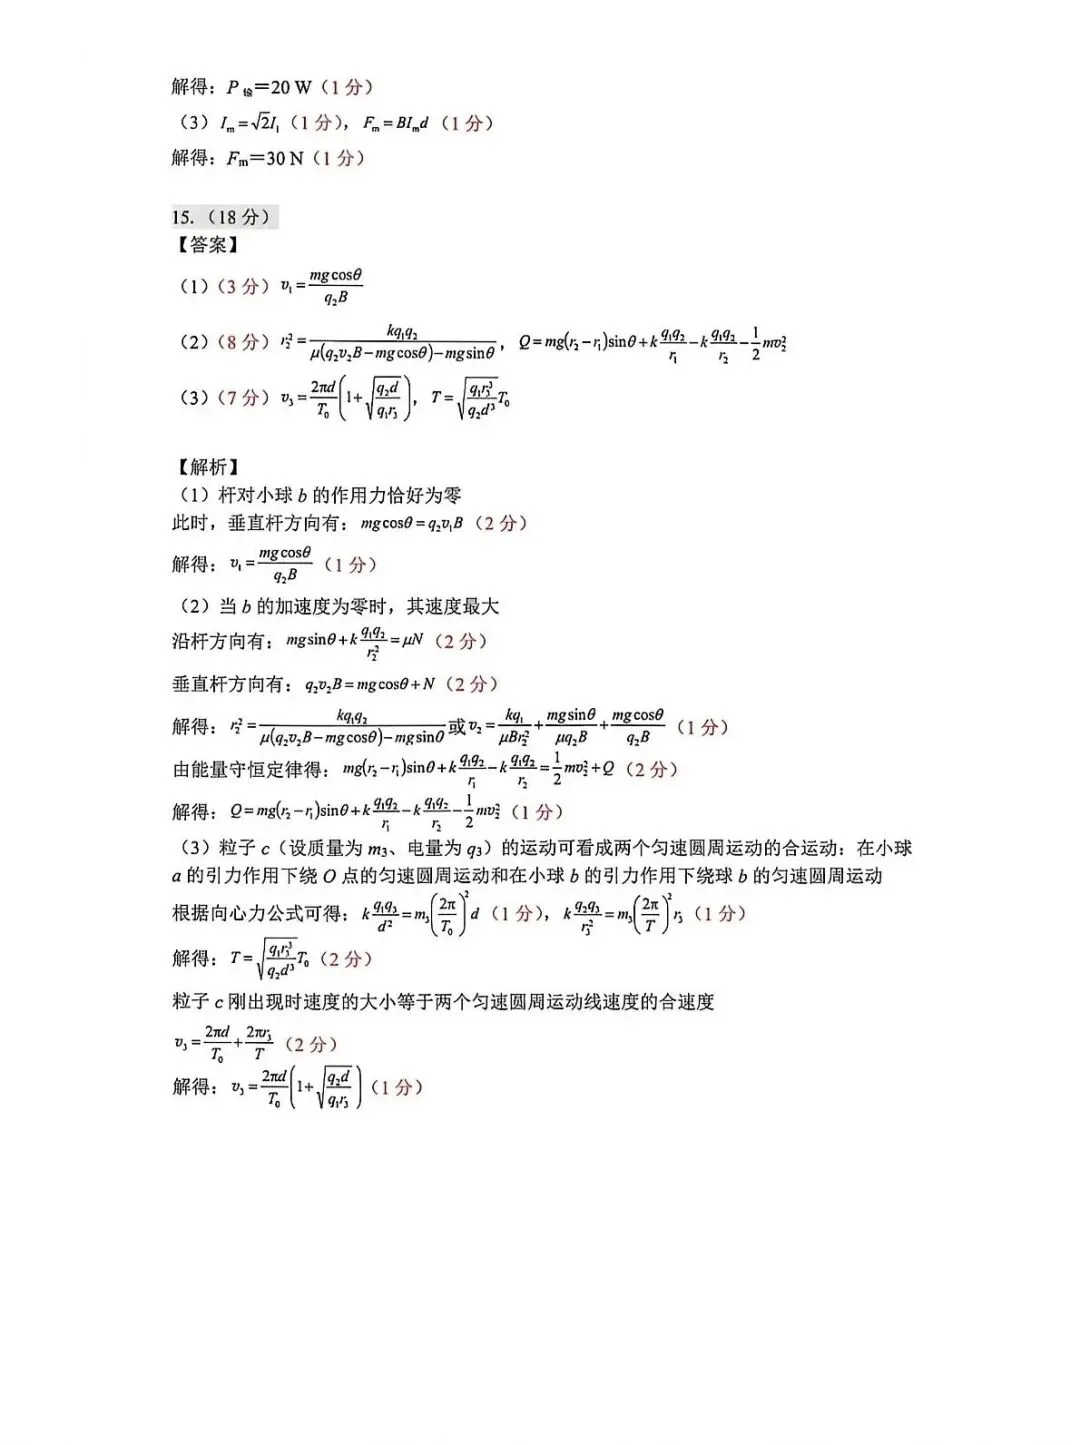 解得：P输＝20 W（1 分）
（3）Iₘ=√2I₁（1 分），Fₘ=BIₘd（1 分）
解得：Fm＝30 N（1 分）
15.（18 分）
【答案】
（1）（3 分）v₁=mgcosθ/(q₂B)
（2）（8 分）r₂²=kq₁q₂/(μ(q₂v₂B−mgcosθ)−mgsinθ)，Q=mg(r₂−r₁)sinθ+k(q₁q₂/r₁)−k(q₁q₂/r₂)−(1/2)mv₂²
（3）（7 分）v₃=(2πd/T₀)(1+√(q₂d/(q₁r₃)))，T=√(q₁r₃³/(q₂d³))T₀
【解析】
（1）杆对小球 b 的作用力恰好为零
此时，垂直杆方向有：mgcosθ=q₂v₁B（2 分）
解得：v₁=mgcosθ/(q₂B)（1 分）
（2）当 b 的加速度为零时，其速度最大
沿杆方向有：mgsinθ+k(q₁q₂/r₂²)=μN（2 分）
垂直杆方向有：q₂v₂B=mgcosθ+N（2 分）
解得：r₂²=kq₁q₂/(μ(q₂v₂B−mgcosθ)−mgsinθ)或v₂=kq₁/(μBr₂²)+mgsinθ/(μq₂B)+mgcosθ/(q₂B)（1 分）
由能量守恒定律得：mg(r₂−r₁)sinθ+k(q₁q₂/r₁)−k(q₁q₂/r₂)=(1/2)mv₂²+Q（2 分）
解得：Q=mg(r₂−r₁)sinθ+k(q₁q₂/r₁)−k(q₁q₂/r₂)−(1/2)mv₂²（1 分）
（3）粒子 c（设质量为 m₃、电量为 q₃）的运动可看成两个匀速圆周运动的合运动：在小球
a 的引力作用下绕 O 点的匀速圆周运动和在小球 b 的引力作用下绕球 b 的匀速圆周运动
根据向心力公式可得：k(q₁q₃/d²)=m₃(2π/T₀)²d（1 分），k(q₂q₃/r₃²)=m₃(2π/T)²r₃（1 分）
解得：T=√(q₁r₃³/(q₂d³))T₀（2 分）
粒子 c 刚出现时速度的大小等于两个匀速圆周运动线速度的合速度
v₃=2πd/T₀+2πr₃/T（2 分）
解得：v₃=(2πd/T₀)(1+√(q₂d/(q₁r₃)))（1 分）